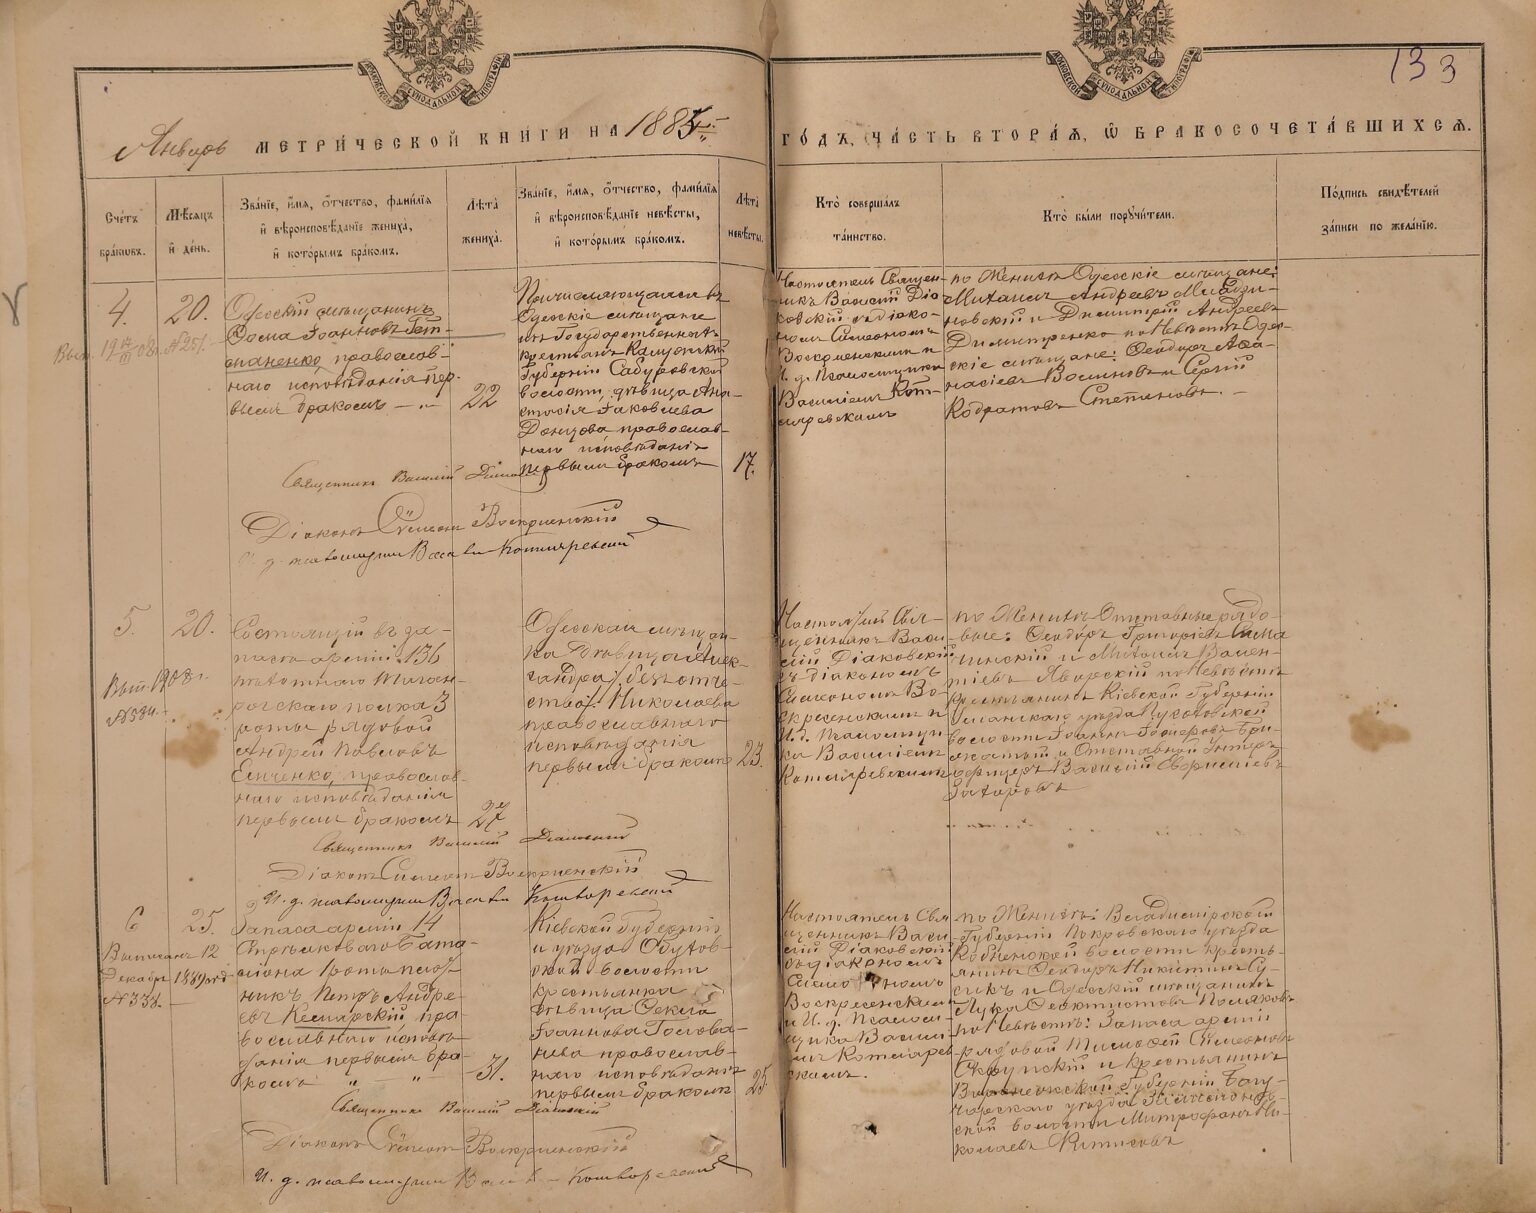 МОСКОВСКОЙ СУНОДАЛЬНОЙ ТИПОГРАФІИ
МОСКОВСКОЙ СУНОДАЛЬНОЙ ТИПОГРАФІИ
133
Январь МЕТРИ́ЧЕСКОЙ КНИ́ГИ НА 188
ГО́ДЪ, ЧА́СТЬ ВТОРА́Я, Ѡ БРАКОСОЧЕТА́ВШИХСЯ.
Сче́тъ бра́ковъ.
Мѣ́сяцъ и҆ де́нь.
Зва́нїе, и҆́мя, ѻ҆́тчество, фами́лїя
и҆ вѣроисповѣ́данїе жениха̀,
и҆ кото́рымъ бра́комъ.
Лѣ́та жениха̀.
Зва́нїе, и҆́мя, ѻ҆́тчество, фами́лїя
и҆ вѣроисповѣ́данїе невѣ́сты,
и҆ кото́рымъ бра́комъ.
Лѣ́та невѣ́сты.
Кто̀ соверша́лъ
та́инство.
Кто̀ бы́ли порꙋчи́тели.
По́дпись свидѣ́телей
за́писи по жела́нїю.
4.
20.
Одесскій мѣщанинъ
Ѳома Іоанновъ
православ-
наго исповѣданія пер-
вымъ бракомъ
22
Причисляющаяся въ
Одесскіе мѣщане
изъ Государственныхъ
крестьянъ Калужской
Губерніи Сабуровской
волости, дѣвица Ана-
стасія Іаковлева
Донцова православ-
наго исповѣданія
первымъ бракомъ
17.
Настоятель Священ-
никъ Василій Діа-
ковскій съ діако-
номъ Симеономъ
Воскресенскимъ и
И. д. Псаломщика
Василіемъ Кот-
ляревскимъ
по Женихѣ Одесскіе мѣщане:
Михаилъ Андреевъ
и Димитрій Андреевъ
Димитренко по Невѣстѣ Одес-
скіе мѣщане: Ѳеодоръ Аѳа-
насіевъ и Сергій
Кодратовъ Степановъ.
Священникъ Василій Діаковскій
Діаконъ Симеонъ Воскресенскій
И. д. псаломщика Василій Котляревскій
5.
20.
1908 г.
Состоящій въ за-
пасѣ арміи 136
пѣхотнаго Таган-
рогскаго полка 3
роты рядовой
Андрей Павловъ
Енченко, православ-
наго исповѣданія
первымъ бракомъ
27
Одесская мѣщан-
ка дѣвица Алек-
сандра (безъотче-
ства) Николаева
православнаго
исповѣданія
первымъ бракомъ
23.
Настоятель Свя-
щенникъ Васи-
лій Діаковскій
съ діакономъ
Симеономъ Во-
скресенскимъ и
И. д. Псаломщи-
ка Василіемъ
Котляревскимъ
по Женихѣ Отставные рядо-
вые: Ѳеодоръ Григоріевъ
и Михаилъ Вален-
тіевъ Яворскій по Невѣстѣ
крестьянинъ Кіевской Губерніи
Уманскаго уѣзда
волости Іоаннъ
и Отставной Унтеръ-
офицеръ Василій
Захаровъ
Священникъ Василій Діаковскій
Діаконъ Симеонъ Воскресенскій
И. д. псаломщика Василій Котляревскій
6
25.
12
Декабря 1889 года
№ 338.
Запаса арміи 14
Стрѣлковаго Бата-
ліона 1 роты плот-
никъ Петръ Андре-
евъ пра-
вославнаго исповѣ-
данія первымъ бра-
комъ
31.
Кіевской Губерніи
и уѣзда Обухов-
ской волости
крестьянка
дѣвица Ѳекла
Іоаннова Голова-
нева православ-
наго исповѣданія
первымъ бракомъ
25.
Настоятель Свя-
щенникъ Васи-
лій Діаковскій
съ діакономъ
Симеономъ
Воскресенскимъ
и И. д. Псалом-
щика Васили-
емъ Котлярев-
скимъ.
по Женихѣ: Владимірской
Губерніи Покровскаго уѣзда
волости кресть-
янинъ Ѳеодоръ Никитинъ
и Одесскій мѣщанинъ
Лука Ѳеоктистовъ Поляковъ
по Невѣстѣ: Запаса арміи
рядовой Тимоѳей Симеоновъ
и крестьянинъ
Воронежской Губерніи Богу-
чарскаго уѣзда
волости Митрофанъ Ни-
колаевъ
Священникъ Василій Діаковскій
Діаконъ Симеонъ Воскресенскій
И. д. псаломщика Василій Котляревскій